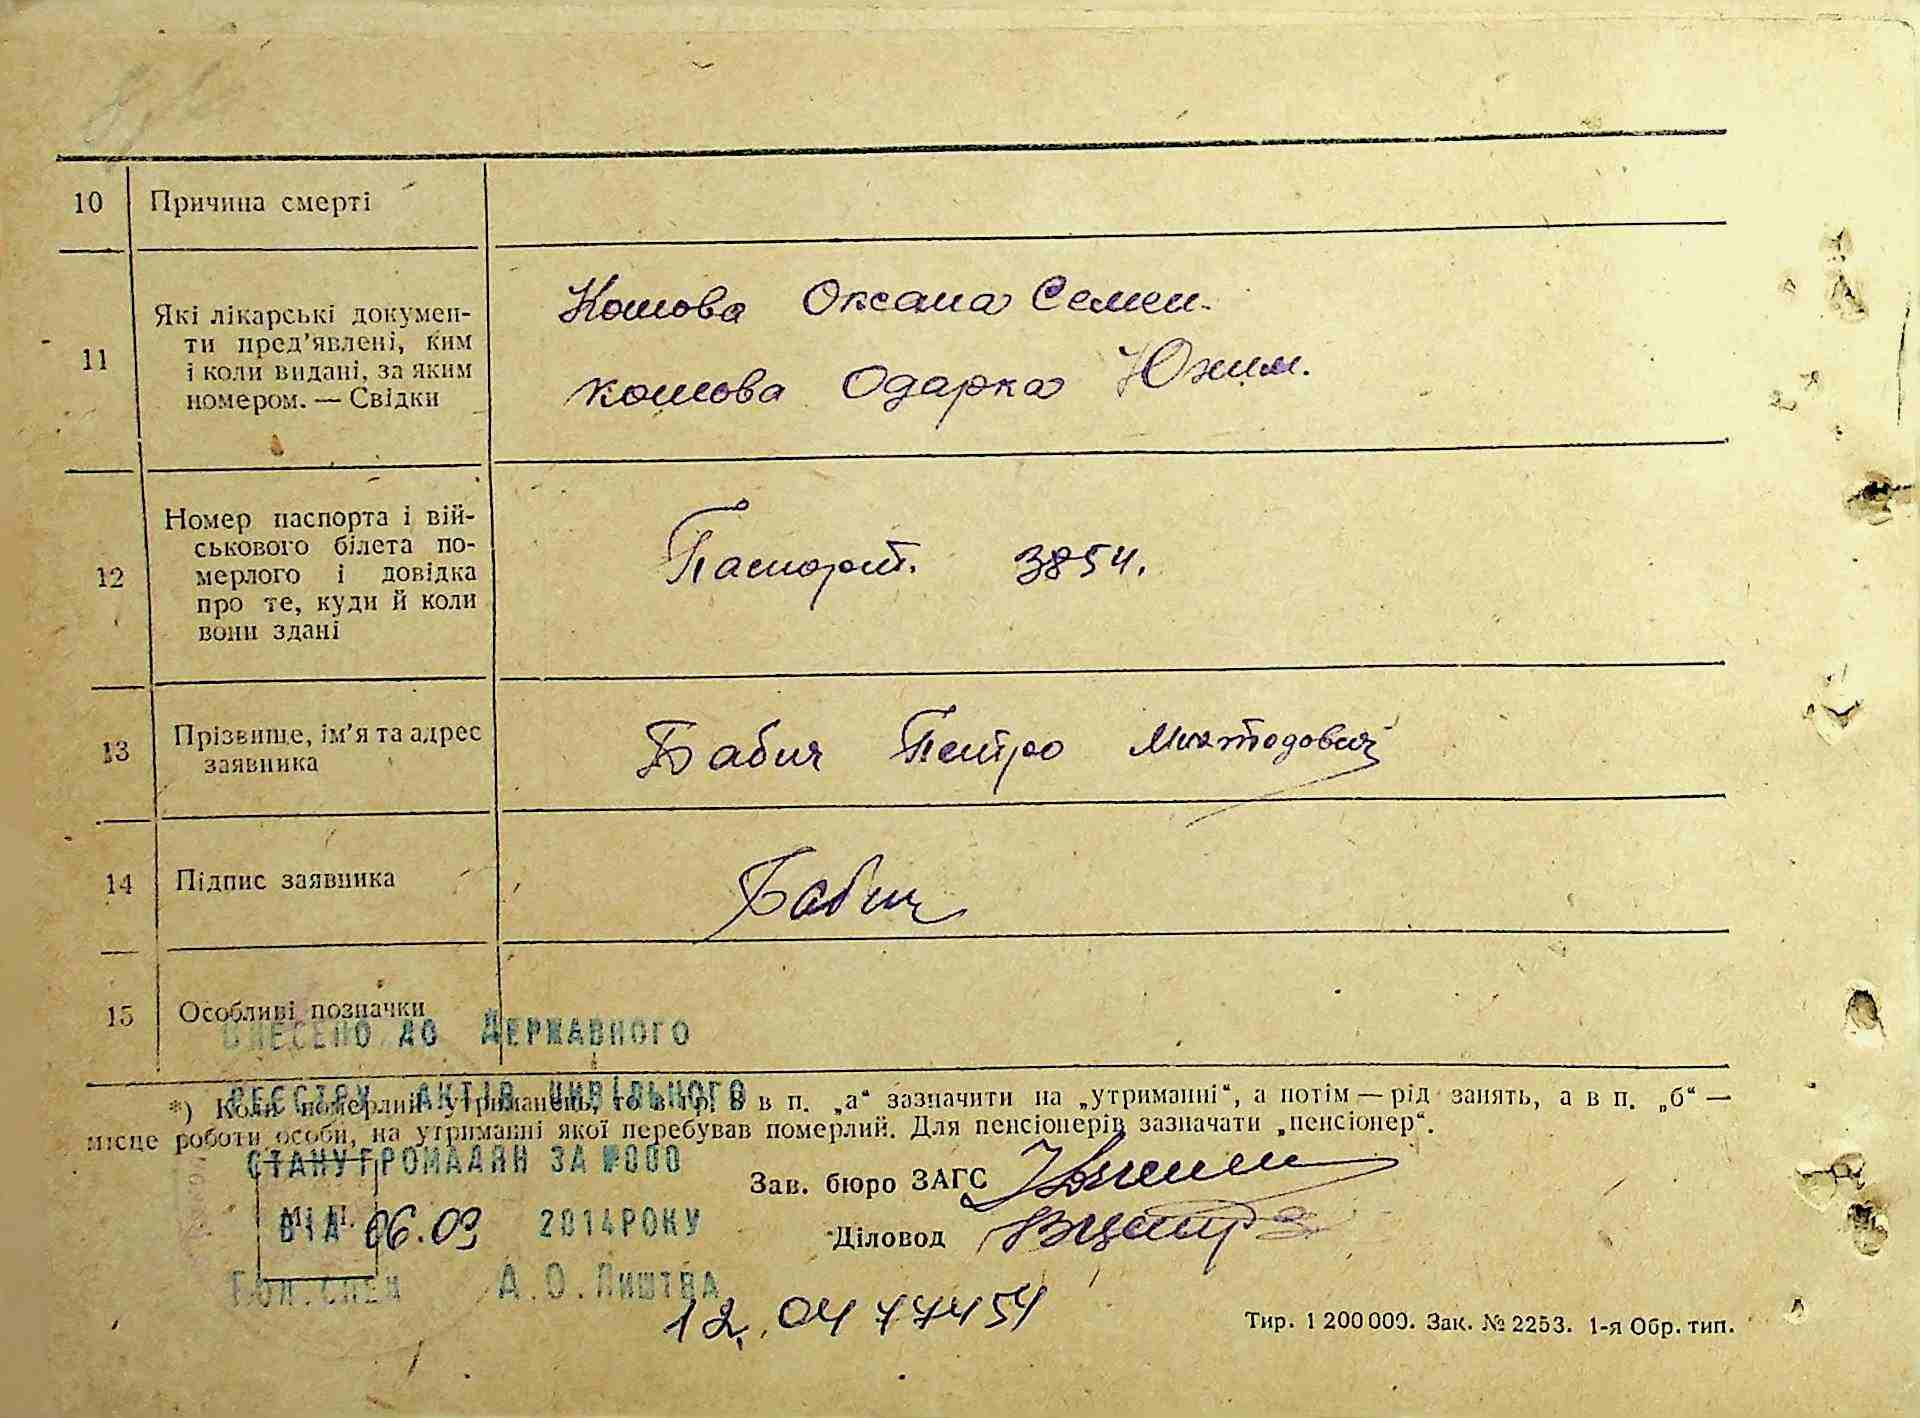 10 Причина смерті
11 Які лікарські докумен-
ти пред'явлені, ким
і коли видані, за яким
номером. — Свідки
Комова Оксана Семен.
Комова Одарка Юхим.
12 Номер паспорта і вій-
ськового білета по-
мерлого і довідка
про те, куди й коли
вони здані
Паспорт. 3854.
13 Прізвище, ім'я та адрес
заявника
Бабич Петро
14 Підпис заявника
Бабич
15 Особливі позначки
ВНЕСЕНО ДО ДЕРЖАВНОГО
РЕЄСТРУ АКТІВ ЦИВІЛЬНОГО
*) Коли померлий утриманець, то в гр. 8 в п. „а“ зазначити на „утриманні“, а потім — рід занять, а в п. „б“ —
місце роботи особи, на утриманні якої перебував померлий. Для пенсіонерів зазначати „пенсіонер“.
СТАНУ ГРОМАДЯН ЗА №000
Зав. бюро ЗАГС
М. П.
ВІД 06.09 2014РОКУ
Діловод
ГОЛ.СПЕЦ А.О.ЛИШТВА
12.
Тир. 1 200 000. Зак. № 2253. 1-я Обр. тип.